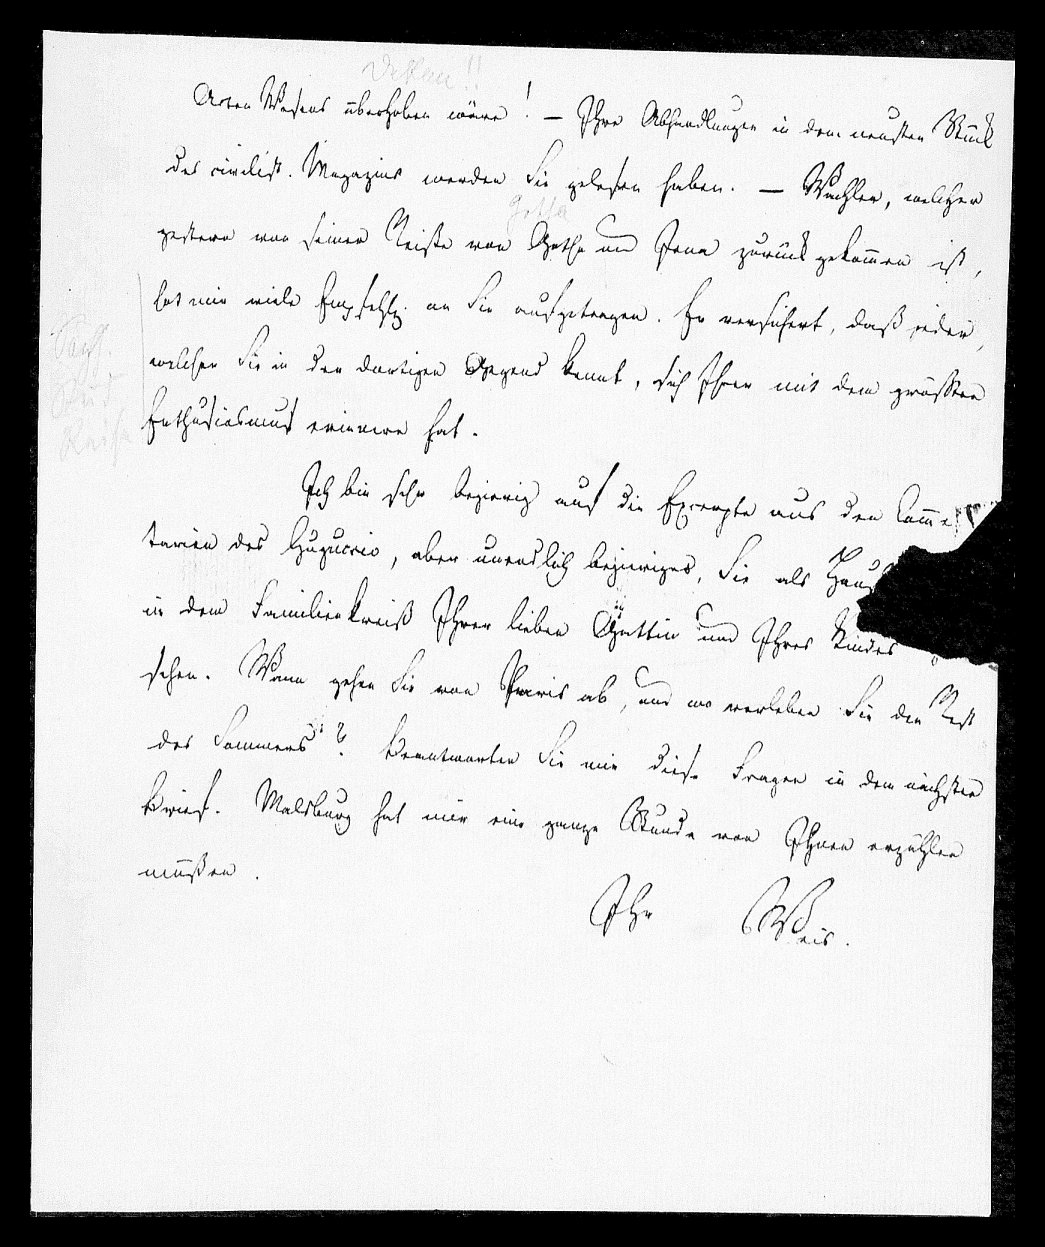 Wesens überhoben wäre! – Ihre Abhandlungen in dem neusten Stück
des civilist. Magazins werden Sie gelesen haben. – Wachler, welcher
Gotha
gestern von seiner Reise von Gotha und Jena zurückgekommen ist,
hat mir viele Empfehlg. an Sie aufgetragen. Er versichert, daß jeder,
welcher Sie in der dortigen Gegend kennt, sich Ihrer mit dem größten
Enthusiasmus erinnere hat.
Ich bin sehr begierig auf die Excerpte aus den Comme
tarien des Huguccio, aber unendlich begieriger, Sie als
in dem Familienkreiß Ihrer lieben Gattin und Ihres Kindes
sehen. Wann gehen Sie von Paris ab, und wo verleben Sie den Rest
des Sommers? Beantworten Sie mir diese Fragen in dem nächsten
Brief. Malsburg hat mir eine ganze Stunde von Ihnen erzählen
müßen.
Ihr Weis.